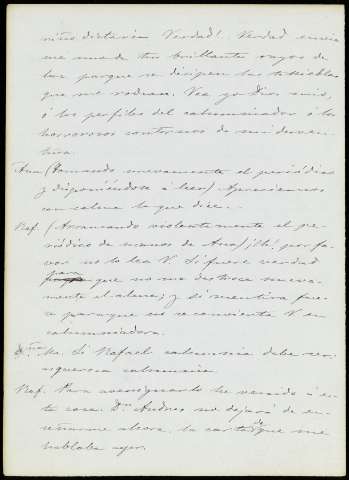 niño dictaria Verdad! Verdad envia
me uno de tus brillantes rayos de
luz porque se disipen las tinieblas
que me rodean. Vea yo Dios mio,
ó los perfiles del calumniador ó los
horrorosos contornos de mi desven-
tura.
Ana (Tomando nuevamente el periódico
y disponiéndose á leer) Apreciemos
con calma lo que dice.
Raf. (Arrancando violentamente el pe-
riódico de manos de Ana) ¡Oh! por fa-
vor no lo lea V. Si fuere verdad
para que no me destroce nueva-
mente el alma; y si mentira fue-
ra para que no se convierta V en
calumniadora.
D.ña Ma. Si Rafael calumnia debe ser
asquerosa calumnia.
Raf. Para averiguarlo he venido á es-
ta casa. Dn Andres no dejará de en-
señarme ahora la carta de que me
hablaba ayer.